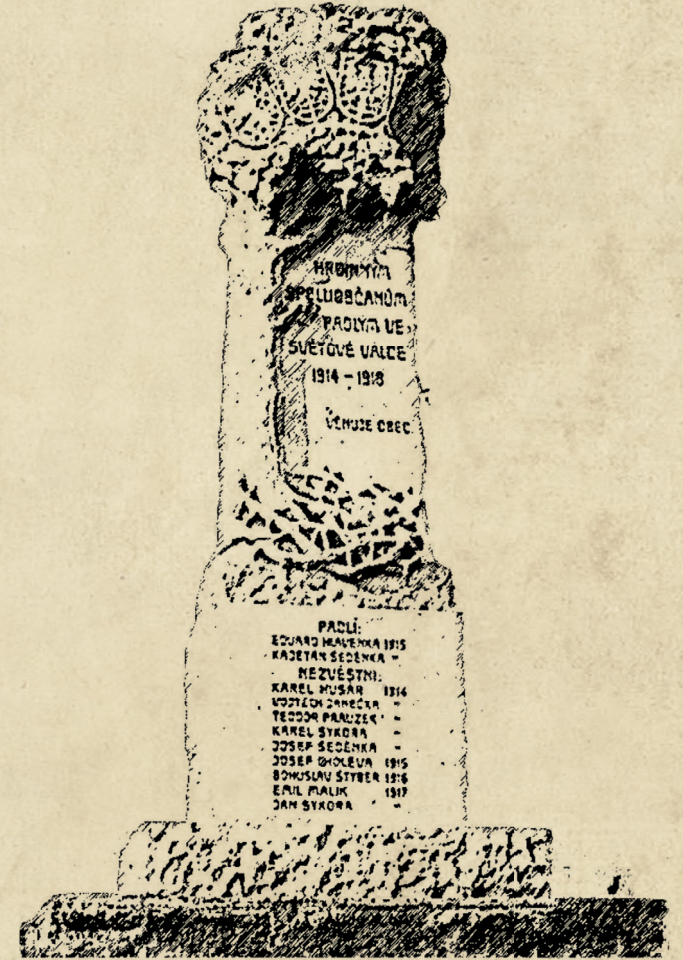 HRDINNÝM
SPOLUOBČANŮM
PADLÝM VE
SVĚTOVÉ VÁLCE
1914 - 1918
VĚNUJE OBEC
PADLÍ:
EDUARD HLAVENKA 1915
KAJETAN ŠEDĚNKA "
NEZVĚSTNI:
KAREL HUSAR 1914
VOJTĚCH "
TEODOR "
KAREL SYKORA "
JOSEF ŠEDĚNKA "
JOSEF 1915
BOHUSLAV STYBER 1916
EMIL MALIK 1917
JAN SYKORA "